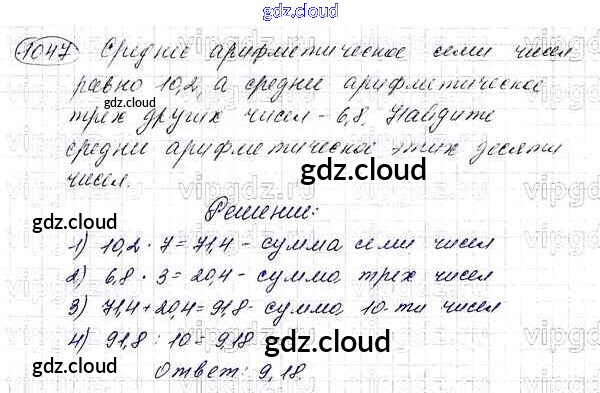 gdz.cloud
1047 Среднее арифметическое семи чисел
равно 10,2, а среднее арифметическое
gdz.cloud
gdz.cloud
трех других чисел - 6,8. Найдите
среднее арифметическое этих десяти
gdz.cloud
чисел.
Решение:
gdz.cloud
gdz.cloud
1) 10,2 · 7 = 71,4 - сумма семи чисел
2) 6,8 · 3 = 20,4 - сумма трех чисел
3) 71,4 + 20,4 = 91,8 - сумма 10-ти чисел
4) 91,8 : 10 = 9,18
gdz.cloud
gdz.cloud
Ответ: 9,18.
gdz.cloud